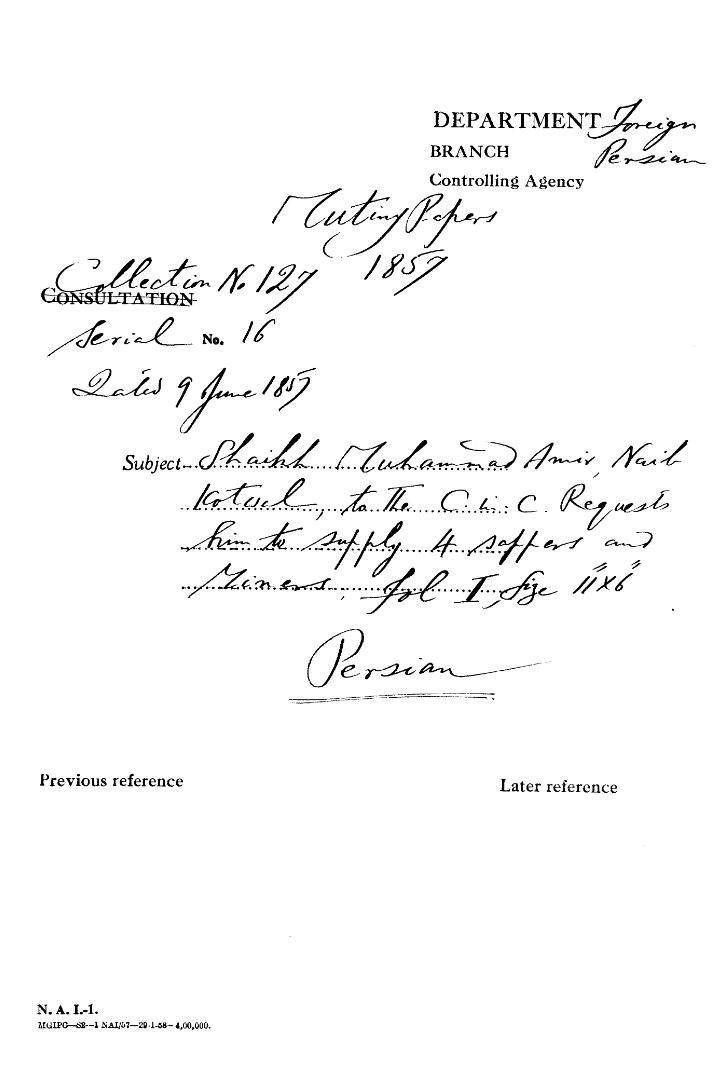 DEPARTMENT Foreign
BRANCH Persian
Controlling Agency
Mutiny Papers
1857
Collection No 127
CONSULTATION
Serial No. 16
Dated 9 June 1857
Subject Shaikh Muhammad Amir, Naib
Kotwal, to the C. in. C. Requests
him to supply 4 sappers and
Miners, fol I, Size 11"x6"
Persian
Previous reference
Later reference
N. A. I.-1.
MGIPC—S2—1 NAI/57—29-1-58—4,00,000.